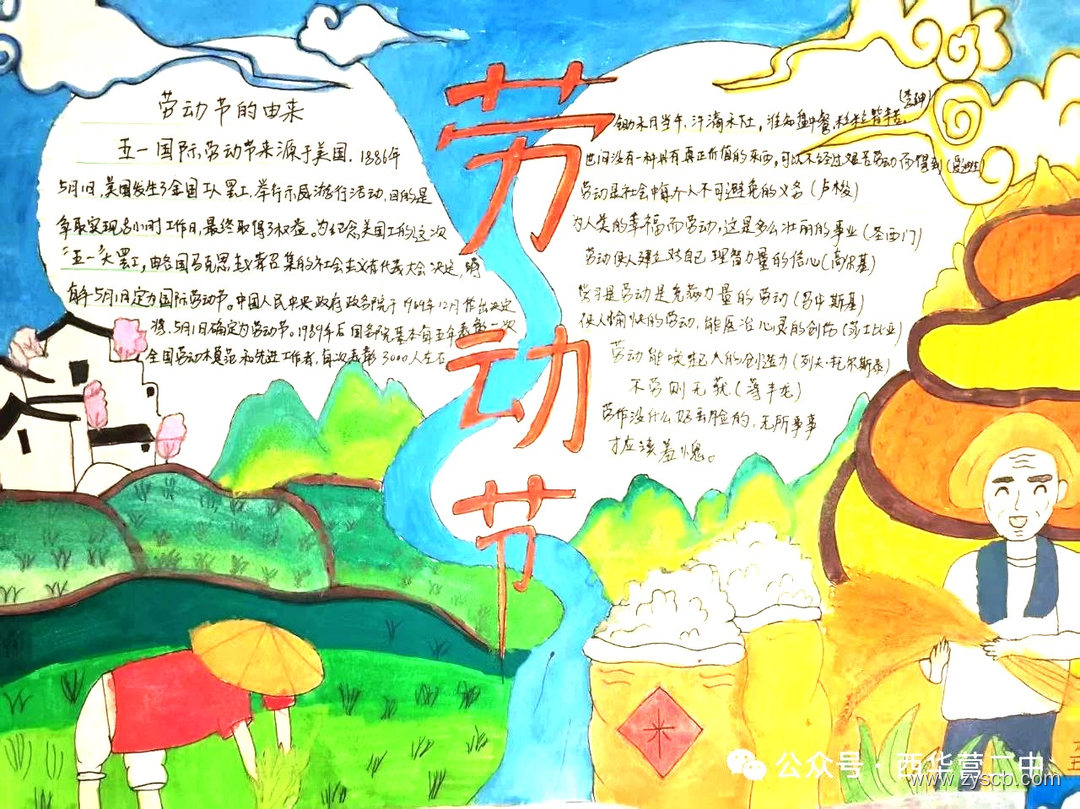 劳动节
劳动节的由来
五一国际劳动节来源于美国。1886年
5月1日,美国发生了全国工人罢工,举行示威游行活动,目的是
争取实现8小时工作日,最终取得了权益。为纪念美国工人这次
"五一"大罢工,由各国马克思主义者召集的社会主义者代表大会决定,
每年5月1日定为国际劳动节。中国人民中央政府政务院于19 9年12月作出决定
将5月1日确定为劳动节。1989年后国务院基本每五年表彰一次
全国劳动模范和先进工作者,每次表彰3000人左右
锄禾日当午,汗滴禾下土,谁知盘中餐,粒粒皆辛苦。(李绅)
世间没有一种具有真正价值的东西,可以不经过艰苦劳动而得到(爱迪生)
劳动是社会中每个人不可避免的义务(卢梭)
为人类的幸福而劳动,这是多么壮丽的事业(圣西门)
劳动使人建立对自己理智力量的信心(高尔基)
学习是劳动是充满力量的劳动(乌申斯基)
使人愉快的劳动,能医治心灵的创伤(莎士比亚)
劳动能唤起人的创造力(列夫·托尔斯泰)
不劳则无获(富兰克)
劳作没什么好丢脸的,无所事事
才应该羞愧。
米
公众号·西华营二中
www.zyscb.com